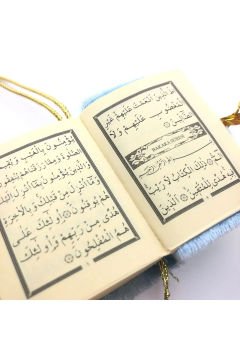 صِرَاطَ الَّذِينَ اَنْعَمْتَ عَلَيْهِمْ غَيْرِ
الْمَغْضُوبِ عَلَيْهِمْ وَلَا
الضَّالِّينَ
BAKARA SURESİ
بِسْمِ اللهِ الرَّحْمٰنِ الرَّحِيمِ
الٓمٓ ذٰلِكَ الْكِتَابُ لَا رَيْبَ
فِيهِ هُدًى لِلْمُتَّقِينَ اَلَّذِينَ
يُؤْمِنُونَ بِالْغَيْبِ وَيُقِيمُونَ
الصَّلٰوةَ وَمِمَّا رَزَقْنَاهُمْ يُنْفِقُونَ
وَالَّذِينَ يُؤْمِنُونَ بِمَا اُنْزِلَ اِلَيْكَ
وَمَا اُنْزِلَ مِنْ قَبْلِكَ وَبِالْاٰخِرَةِ
هُمْ يُوقِنُونَ اُولٰٓئِكَ عَلٰى
هُدًى مِنْ رَبِّهِمْ وَاُولٰٓئِكَ
هُمُ الْمُفْلِحُونَ